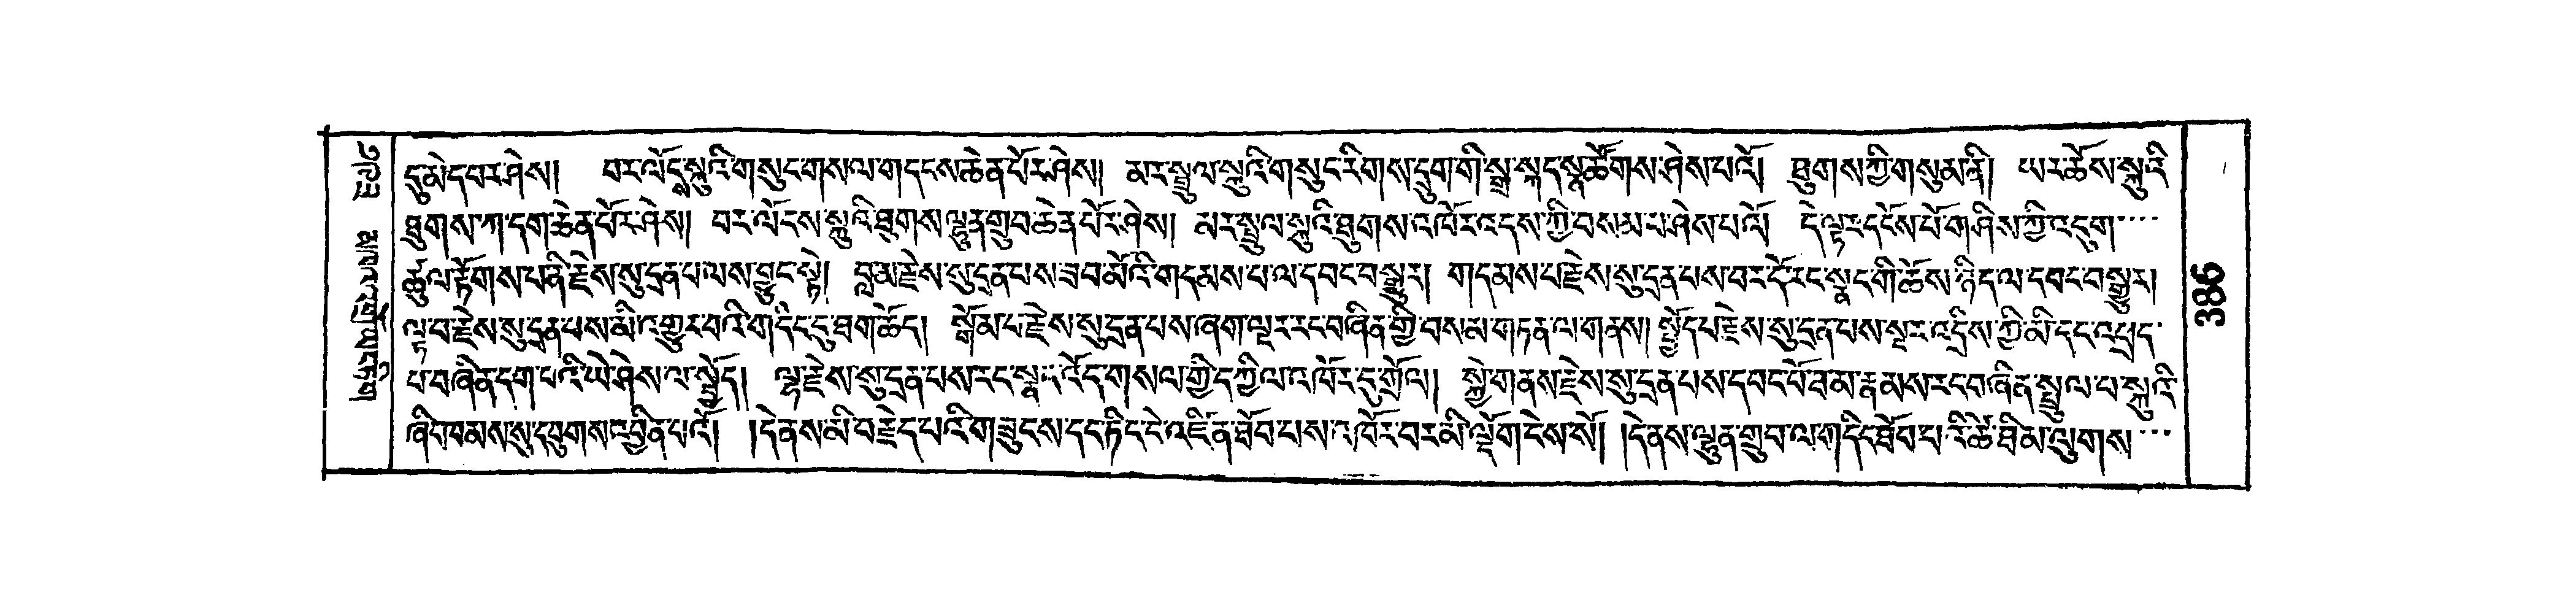 དུ་མེད་པར་ཤེས། བར་ལོངྶ་སྐུའི་གསུང་གསལ་གདངས་ཆེན་པོར་ཤེས། མར་སྤྲུལ་སྐུའི་གསུང་རིགས་དྲུག་གི་སྒྲ་སྐད་སྣ་ཚོགས་ཤེས་པའོ། ཐུགས་ཀྱི་གསུམ་ནི། ཡར་ཆོས་སྐུའི་
ཐུགས་ཀ་དག་ཆེན་པོར་ཤེས། བར་ལོངས་སྐུའི་ཐུགས་ལྷུན་གྲུབ་ཆེན་པོར་ཤེས། མར་སྤྲུལ་སྐུའི་ཐུགས་འཁོར་འདས་ཀྱི་བསམ་པ་ཤེས་པའོ། དེ་ལྟར་དངོས་པོ་གཤིས་ཀྱི་འདུག་····
ཚུལ་རྟོགས་པ་ནི་རྗེས་སུ་དྲན་པ་ལས་བྱུང་སྟེ། བླ་མ་རྗེས་སུ་དྲན་པས་ཟབ་མོའི་གདམས་པ་ལ་དབང་བསྒྱུར། གདམས་པ་རྗེས་སུ་དྲན་པས་བར་དོར་རང་སྣང་གི་ཆོས་ཉིད་ལ་དབང་བསྒྱུར།
ལྟ་བ་རྗེས་སུ་དྲན་པས་མི་འགྱུར་བའི་གདིང་དུ་ཐག་ཆོད། སྒོམ་པ་རྗེས་སུ་དྲན་པས་ཞག་ལྔར་རང་བཞིན་གྱི་བསམ་གཏན་ལ་གནས། སྤྱོད་པ་རྗེས་སུ་དྲན་པས་སྔར་འདྲིས་ཀྱི་མི་དང་འཕྲད་
པ་བཞིན་དག་པའི་ཡེ་ཤེས་ལ་སྤྲོད། ལྷ་རྗེས་སུ་དྲན་པས་རང་སྣང་འོད་གསལ་གྱི་དཀྱིལ་འཁོར་དུ་གྲོལ། སྐྱེ་གནས་རྗེས་སུ་དྲན་པས་དབང་པོ་ཐ་མ་རྣམས་རང་བཞིན་སྤྲུལ་པ་སྐུའི་
ཞིང་ཁམས་སུ་དབུགས་འབྱིན་པའོ། །དེ་ནས་མི་བརྗེད་པའི་གཟུངས་དང་ཏིང་ངེ་འཛིན་ཐོབ་པས་འཁོར་བར་མི་ལྡོག་ངེས་སོ། །དེ་ནས་ལྷུན་གྲུབ་ལ་གདིང་ཐོབ་པའི་ཚེ་ཐིམ་ལུགས་···